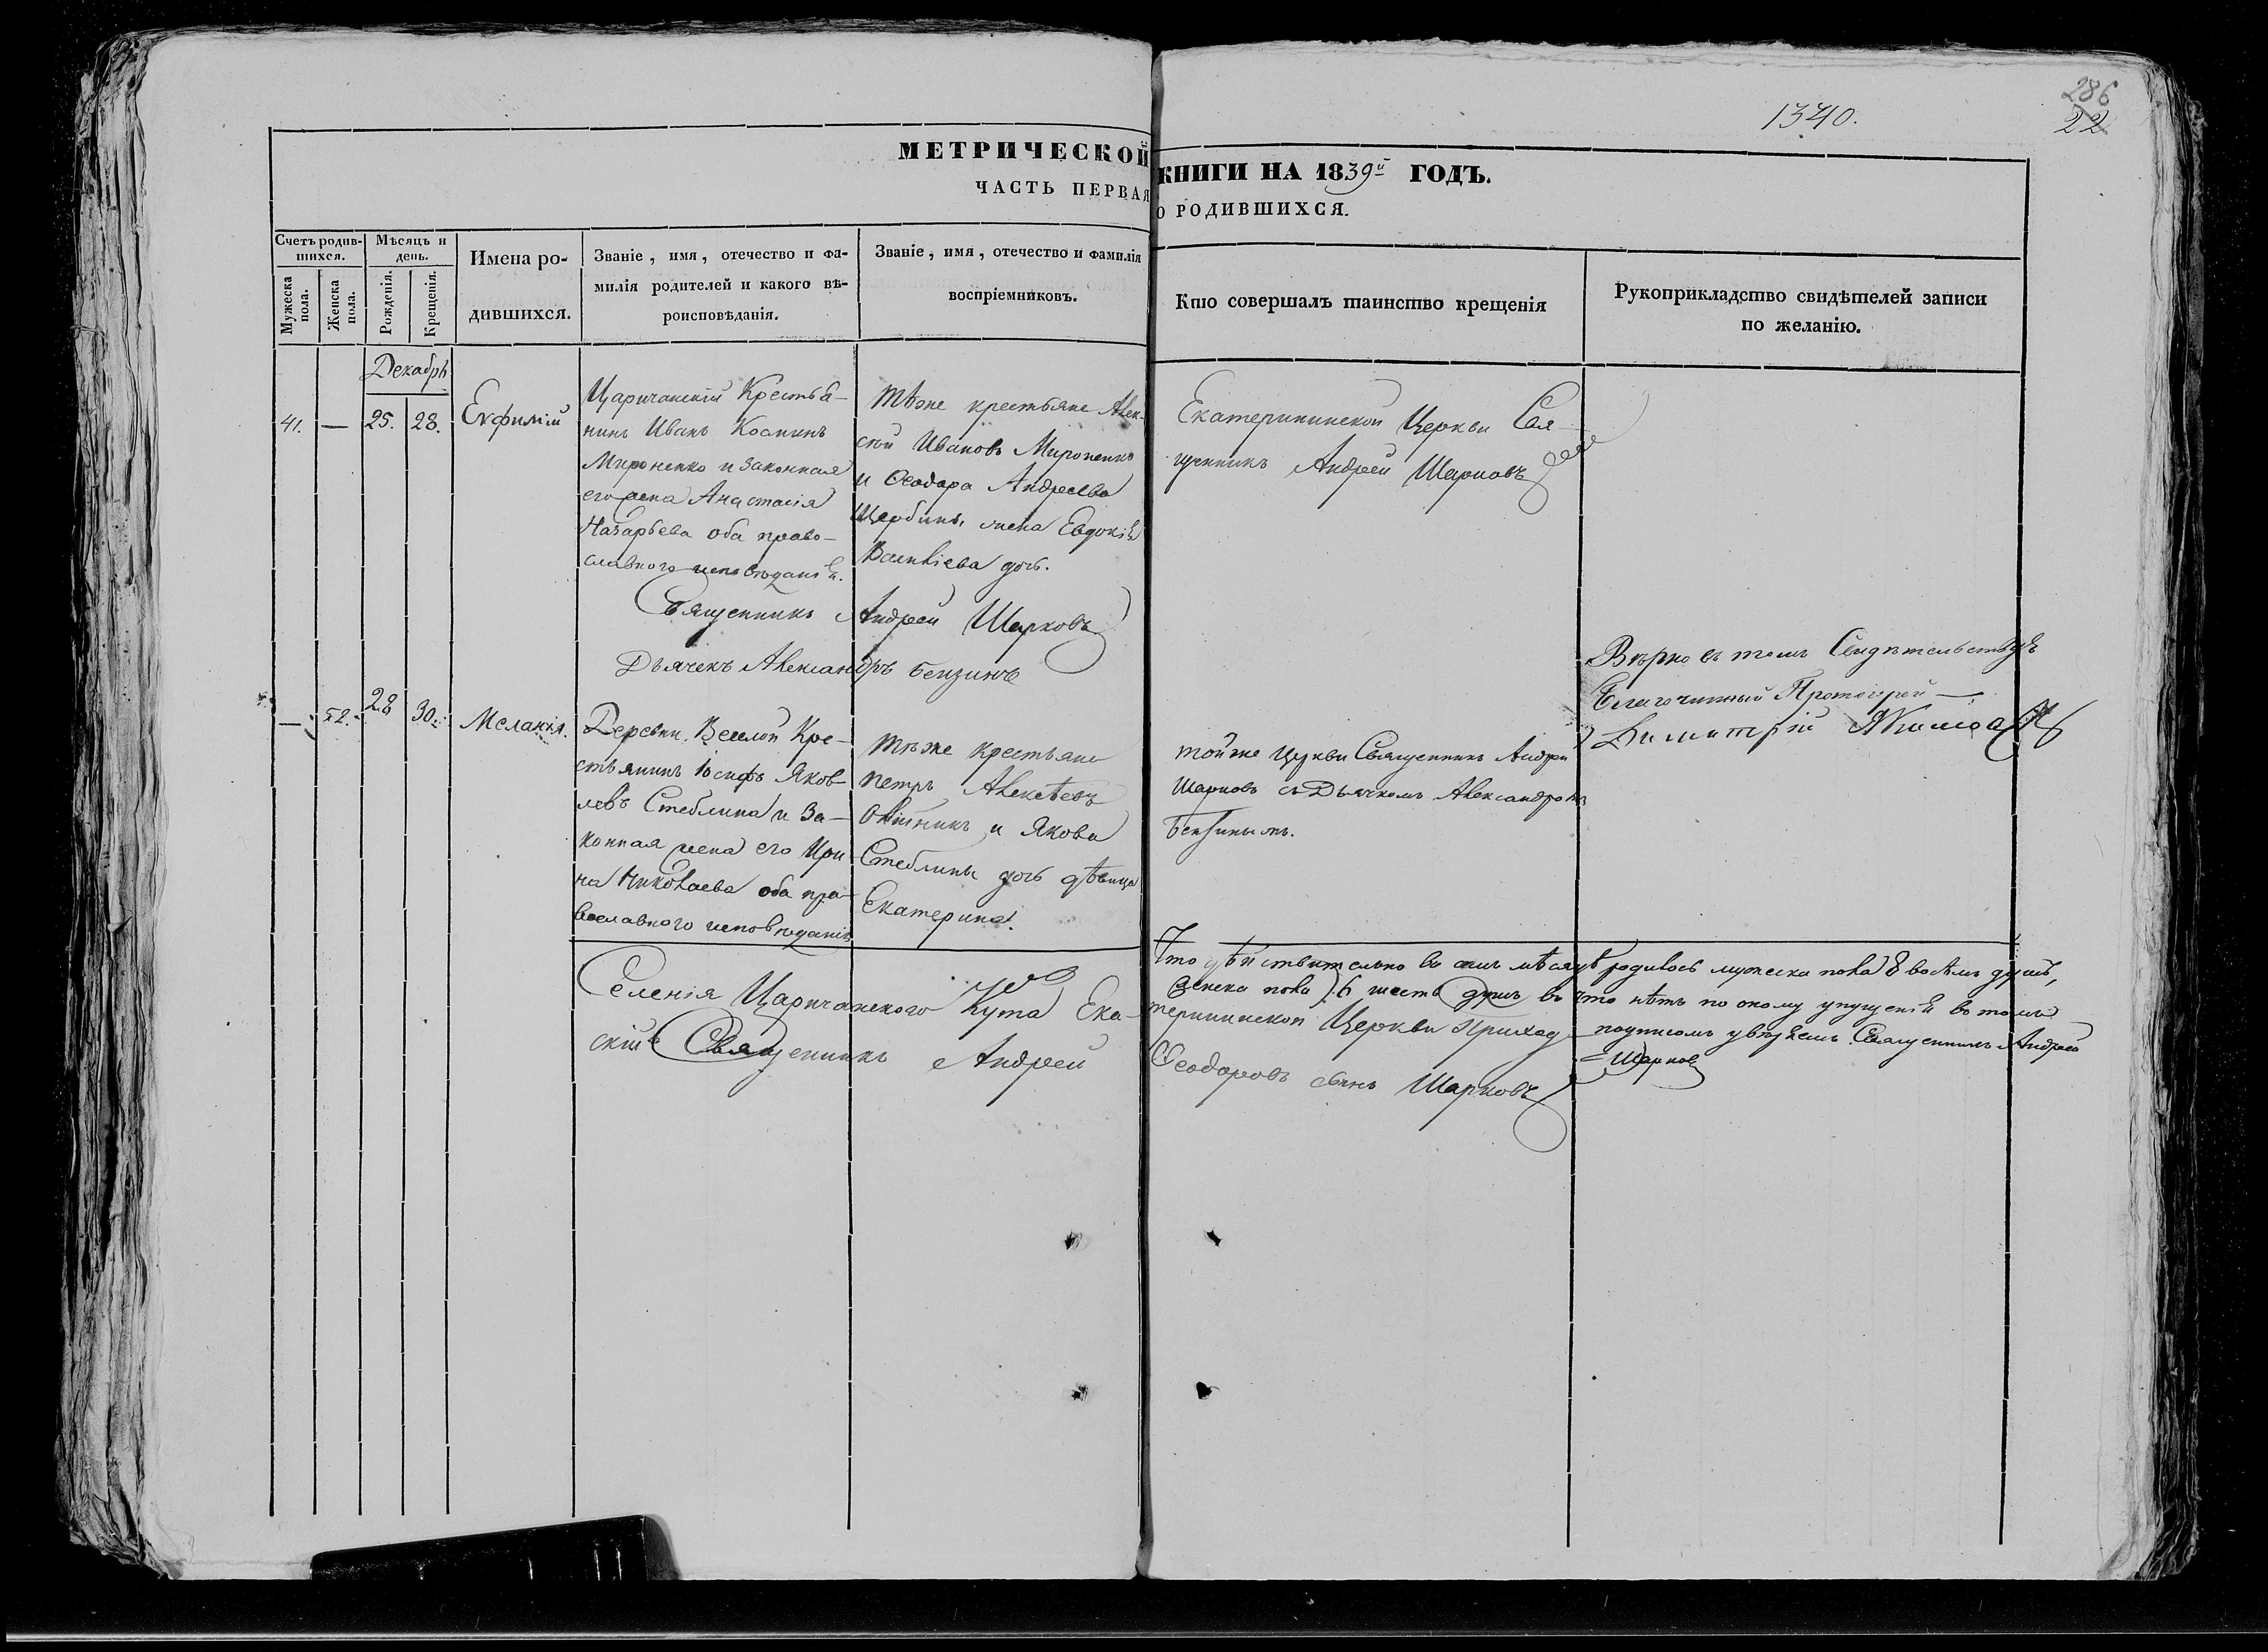 286
22
1340.
МЕТРИЧЕСКОЙ КНИГИ НА 1839й ГОДЪ.
ЧАСТЬ ПЕРВАЯ О РОДИВШИХСЯ.
Счетъ родив-
шихся.
Мужеска пола.
Женска пола.
Мѣсяцъ и
день.
Рожденія.
Крещенія.
Имена ро-
дившихся.
Званіе, имя, отечество и фа-
милія родителей и какого вѣ-
роисповѣданія.
Званіе, имя, отечество и фамилія
воспріемниковъ.
Кто совершалъ таинство крещенія
Рукоприкладство свидѣтелей записи
по желанію.
Декабрь
41. — 25. 28. Евфимій
Царичанскій Крестья-
нинъ Иванъ Косминъ
Мироненко и законная
его жена Анастасія
Назарьева оба право-
славного исповѣданія.
Тѣже крестьяне Алек-
сѣй Ивановъ Мироненко
и Ѳеодора Андреева
Щербины жена Евдокія
Василіева дочь.
Екатерининской Церкви Свя-
щенникъ Андрей Шарковъ
Священникъ Андрей Шарковъ
Дьячекъ Александръ Бензинъ
Вѣрно въ томъ Свидѣтельствуетъ
Благочинный Протоіерей —
Димитрій Якимовъ
— 52. 28 30. Меланія.
Деревни Веселой Кре-
стьянинъ Іосифъ Яков-
левъ Стеблина и За-
конная жена его Ири-
на Николаева оба пра-
вославного исповѣданія
Тѣже крестьяне
Петръ Алексѣевъ
Олійникъ и Якова
Стеблины дочь дѣвица
Екатерина.
тойже Церкви Священникъ Андрей
Шарковъ съ Дьячкомъ Александромъ
Бензинымъ.
Что дѣйствительно въ семъ мѣсяцѣ родилось мужеска пола 8 восемь душъ,
женска пола 6 шесть душъ въ что нѣтъ по оному упущенія въ томъ
подписомъ увѣряемъ Священникъ Андрей
Шарковъ
Селенія Царичанского Кута Ека-
терининской Церкви Приход-
скій Священникъ Андрей
Ѳеодоровъ сынъ Шарковъ